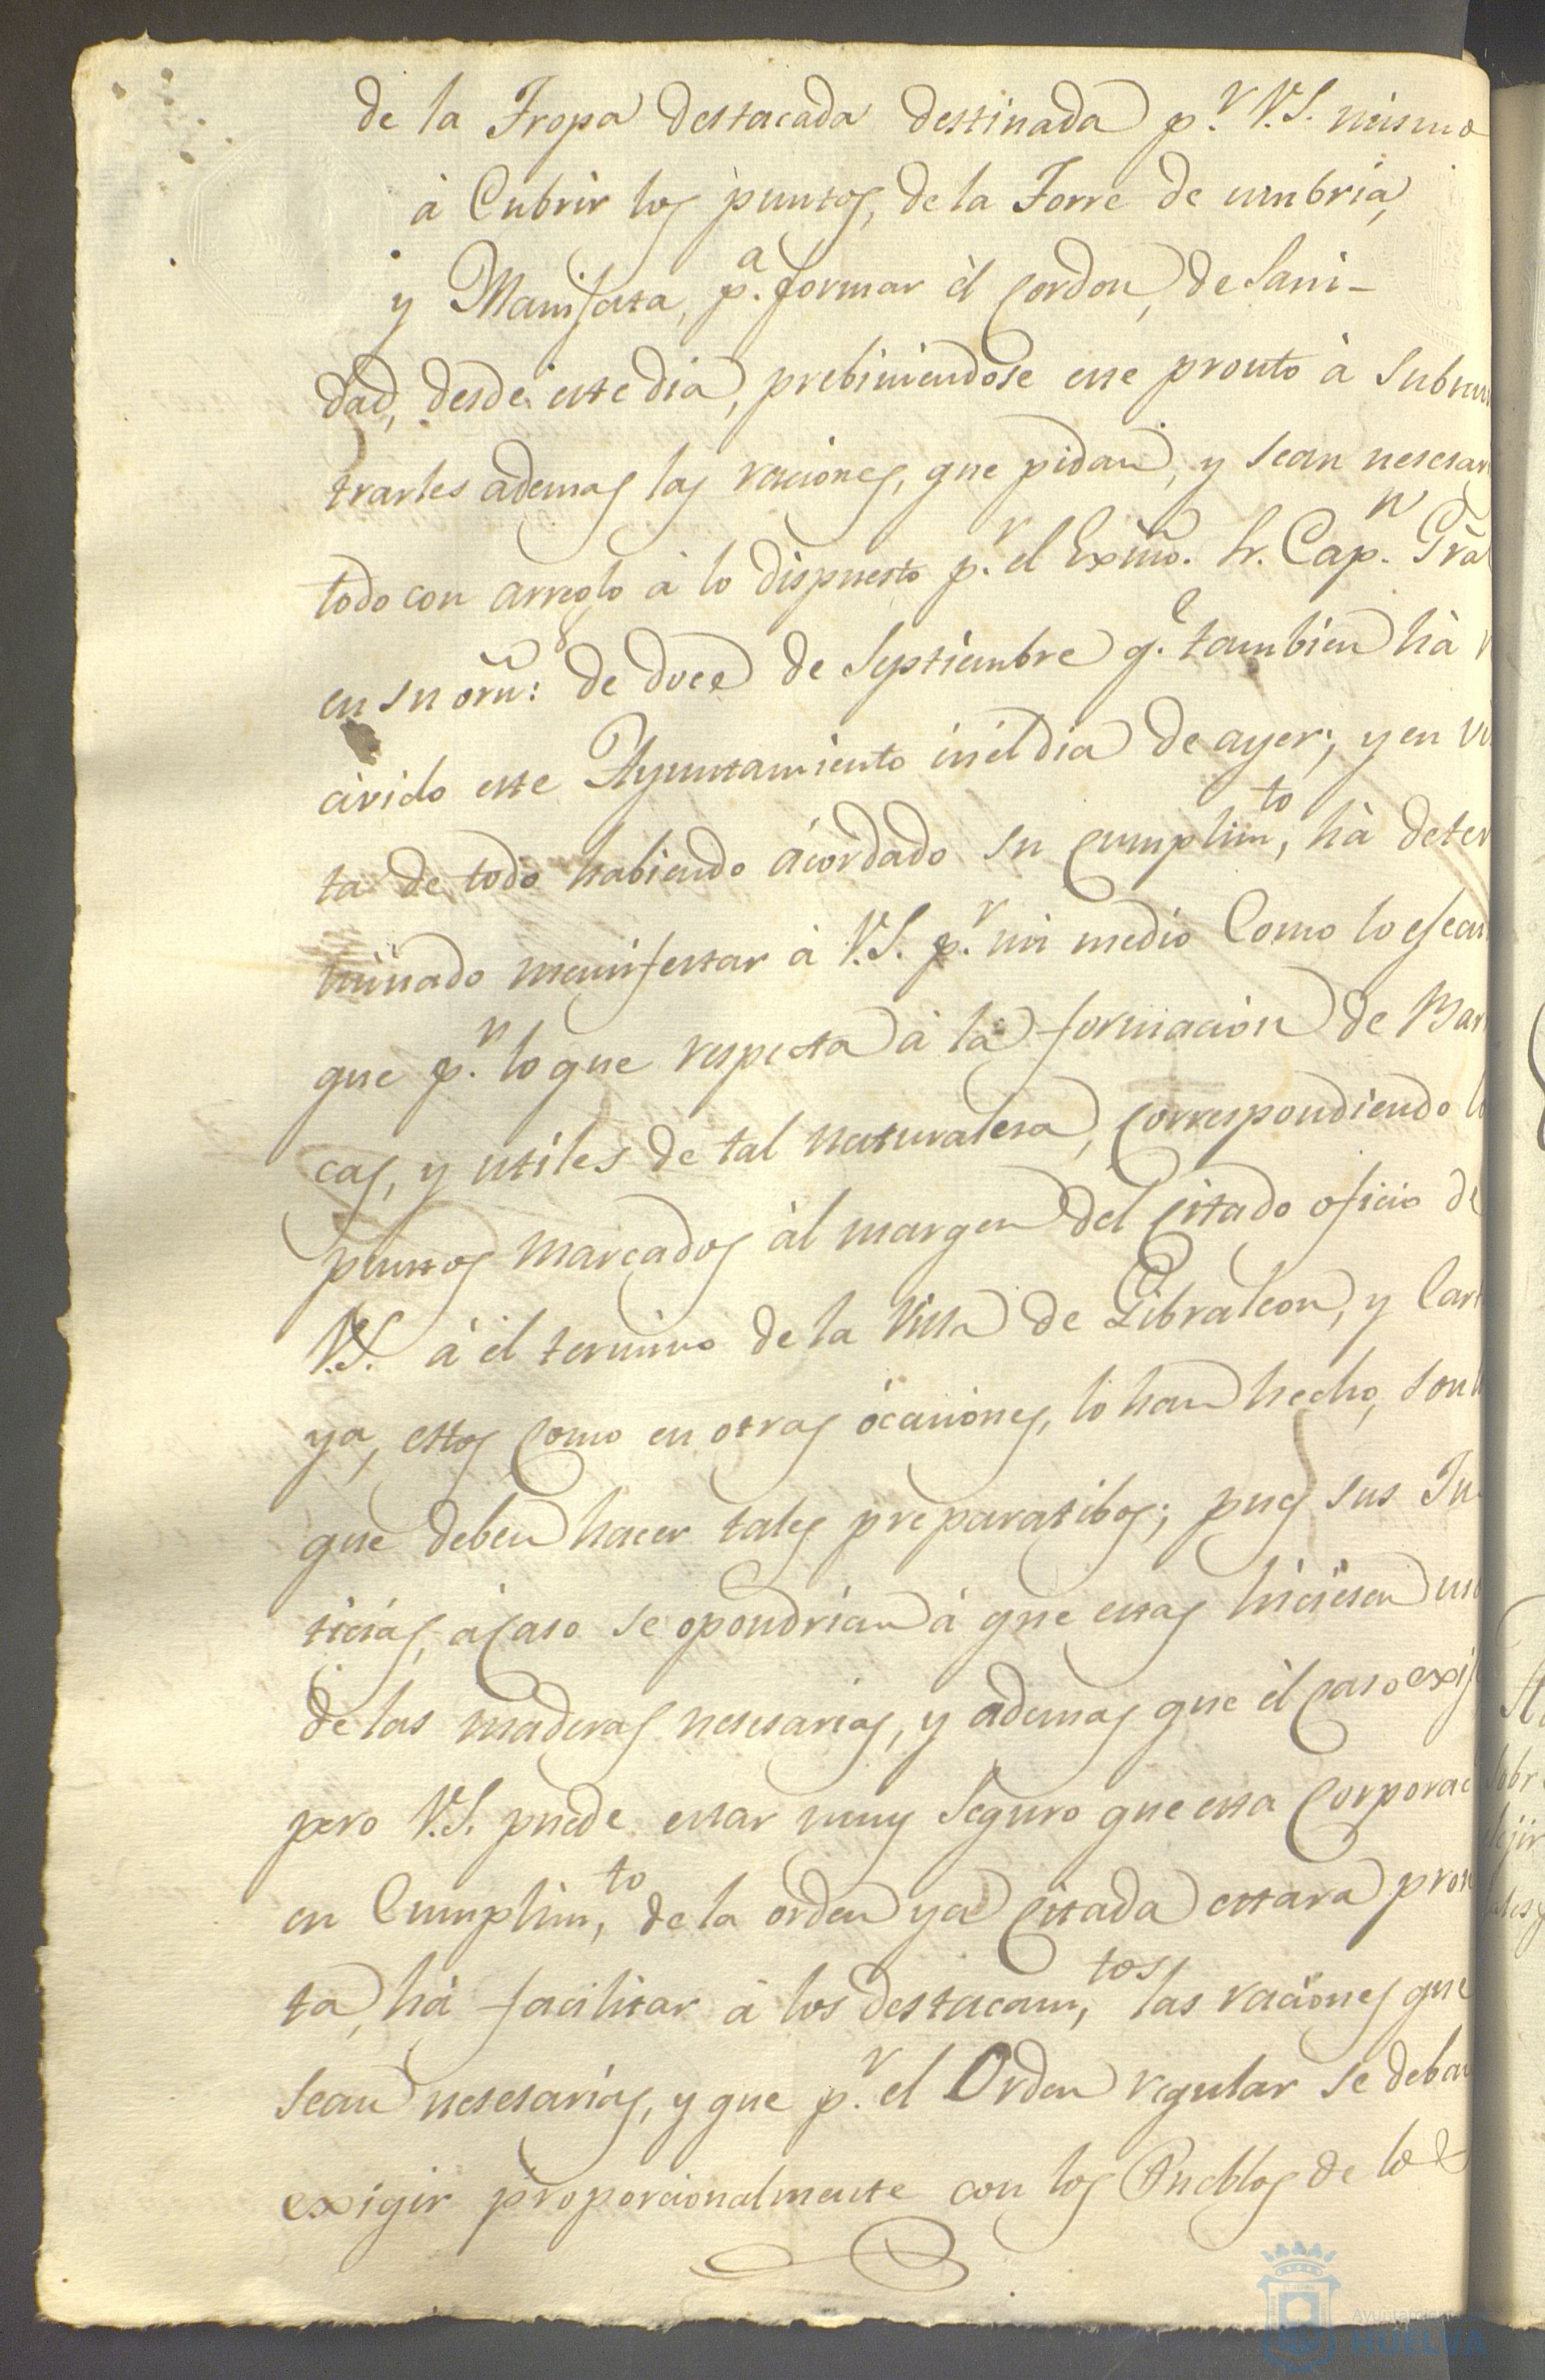 de la Tropa destacada destinada p.r V.S. mismo
à Cubrir los puntos, de la Torre de umbria,
y Manifata, p.a formar èl cordon, de Sani-
dad, desde este dia, prebiniendose este pronto à Subnu
trarles ademas las raciones, que pidan, y sean nesesar
todo con arreglo à lo dispuesto p.r el Exmo. Sr. Cap.n Gral
en su orn: de doce de Septiembre q.e tambien hà r
civido este Ayuntamiento en él dia de ayer; y en vis
ta de todo habiendo ácordado su cumplim,to hà deter
minado manifestar à V.S. p.r mi medio Como lo efectu
que p.r lo que respecta à la formacion de Barr
cas, y utiles de tal naturalesa, correspondiendo lo
puntos marcados àl margen del citado oficio de
V.S. à él termino de la Villa de Gibraleon, y Cart
ya, estos como en otras òcasiones, lo han hecho, son l
que deben hacer tales preparatibos; pues sus Ju
ticias, àcaso se opondrian à que estas hiciesen uso
de las maderas nesesarias, y ademas que èl caso exij
pero V.S. puede estar muy Seguro que esta Corporac
en Cumplim,to de la orden ya citada estara pron
ta, hà facilitar à los destacam,tos las raciones que
sean nesesarias, y que p.r el Orden regular se deban
exigir proporcionalmente con los Pueblos de lo
Ayuntamiento
HUELVA